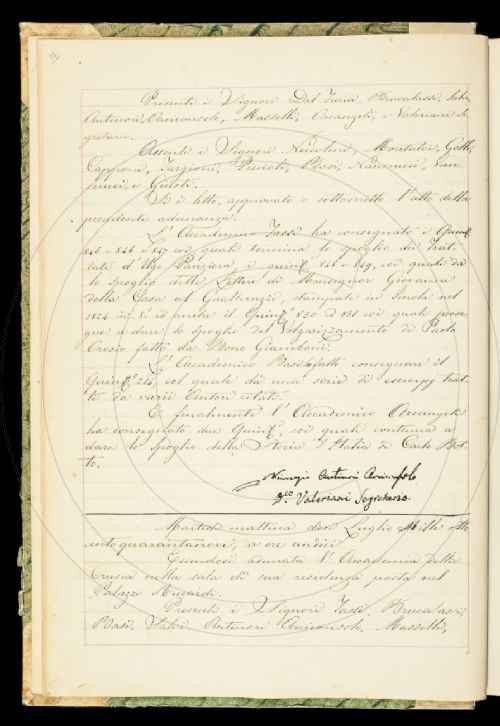 Presenti i Signori Del Furia, Brucalassi,
Antinori, Arciconsolo, Masselli, Arcangeli, e Valeriani Se
gretario.
Assenti i Signori Niccolini, Montalvi, Gatti,
Capponi, Targioni, Piccioli, Basi, Nannucci, Van
nucci, e Giusti.
Si è letto, approvato e sottoscritto l'atto della
precedente adunanza.
L'Accademico Tassi ha consegnato i Quint.
845 e 846 e 847 coi quali termina lo spoglio dei Trat
tati d'Ugo Panziera, i quint. 848 e 849, coi quali dà
lo spoglio delle Lettere di Monsignor Giovanni
della Casa al Gualteruzzi, stampate in Imola nel
1824 in 8.° ed anche il Quint. 850 e 851 coi quali prose
gue a dare lo spoglio del Volgarizzamento di Paolo
Orosio fatto da Bono Giamboni.
L'Accademico Basi fatti consegnare il
Quint. 214, col quale dà una serie di esempj trat
ti da varii Autori citati.
E finalmente l'Accademico Arcangeli
ha consegnato due Quint. coi quali continua a
dare lo spoglio della Storia d'Italia di Carlo Bot
to.
Vincenzio Antinori Arciconsolo
Valeriani Segretario.
Martedì mattina dieci Luglio Mille otto
cento quarantanove, a ore undici
Essendosi adunata l'Accademia della
Crusca nella sala di sua residenza posta nel
Palazzo Riccardi.
Presenti i Signori Tassi, Brucalassi,
Basi, Antinori Arciconsolo, Masselli,